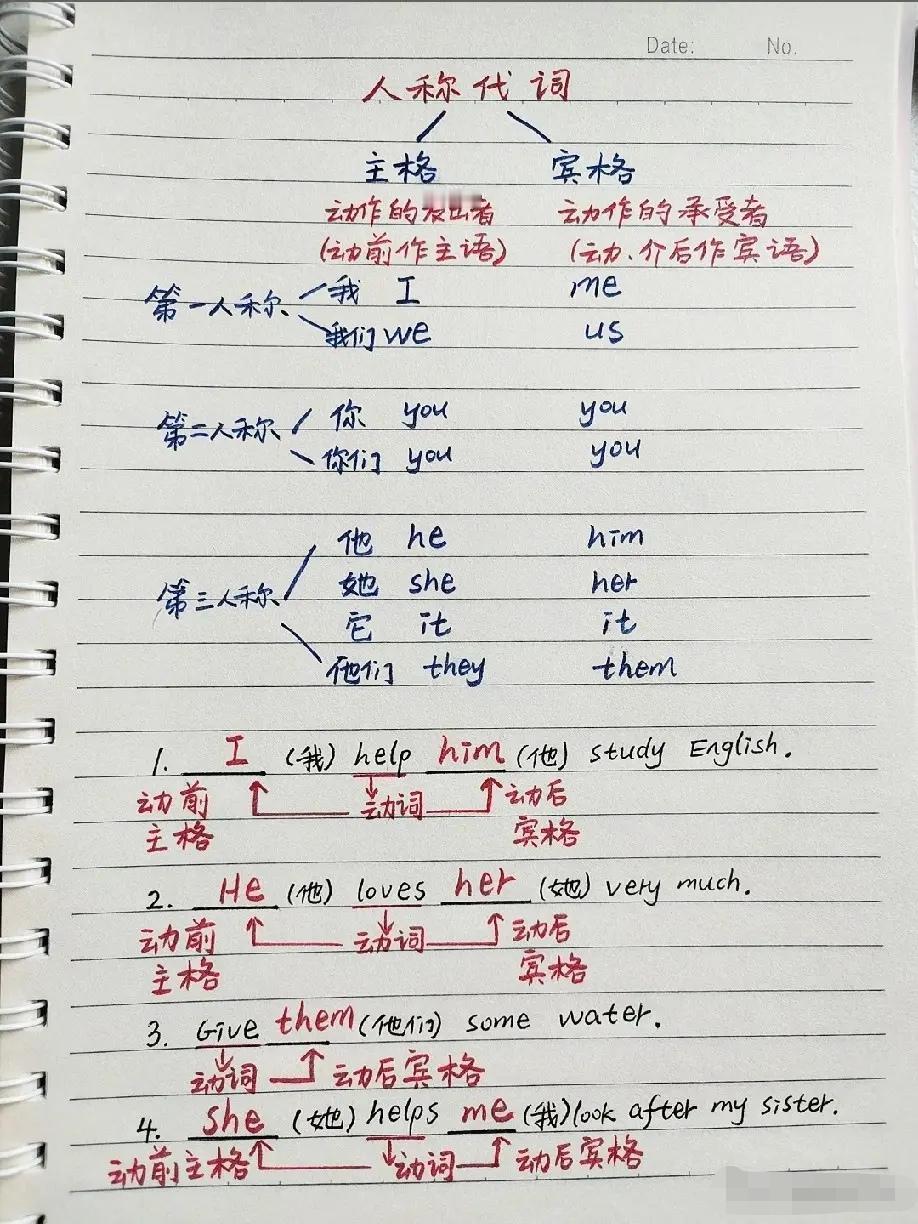 Date: No.
人称代词
主格 宾格
动作的发出者 动作的承受者
(动前作主语) (动、介后作宾语)
第一人称 我 I me
我们 we us
第二人称 你 you you
你们 you you
第三人称 他 he him
她 she her
它 it it
他们 they them
1. I (我) help him (他) study English.
动前 动词 动后
主格 宾格
2. He (他) loves her (她) very much.
动前 动词 动后
主格 宾格
3. Give them (他们) some water.
动词 动后宾格
4. she (她) helps me (我) look after my sister.
动前主格 动词 动后宾格